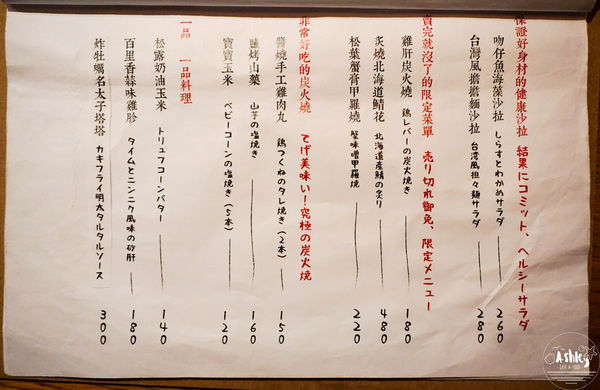 保證好身材的健康沙拉 結果にコミット、ヘルシーサラダ
吻仔魚海藻沙拉 しらすとわかめサラダ 260
台灣風擔擔麵沙拉 台湾風担々麺サラダ 280
賣完就沒了的限定菜單 売り切れ御免、限定メニュー
雞肝炭火燒 鶏レバーの炭火焼き 180
炙燒北海道鯖花 北海道産鯖の炙り 480
松葉蟹膏甲羅燒 蟹味噌甲羅焼 220
非常好吃的炭火燒 てげ美味い!究極の炭火焼
醬燒手工雞肉丸 鶏つくねのタレ焼き(2本) 150
鹽烤山藥 山芋の塩焼き 160
寶寶玉米 ベビーコーンの塩焼き(5本) 120
一品 一品料理
松露奶油玉米 トリュフコーンバター 140
百里香蒜味雞胗 タイムとニンニク風味の砂肝 180
炸牡蠣名太子塔塔 カキフライ明太タルタルソース 300
Ashley
LIFE & FOOD